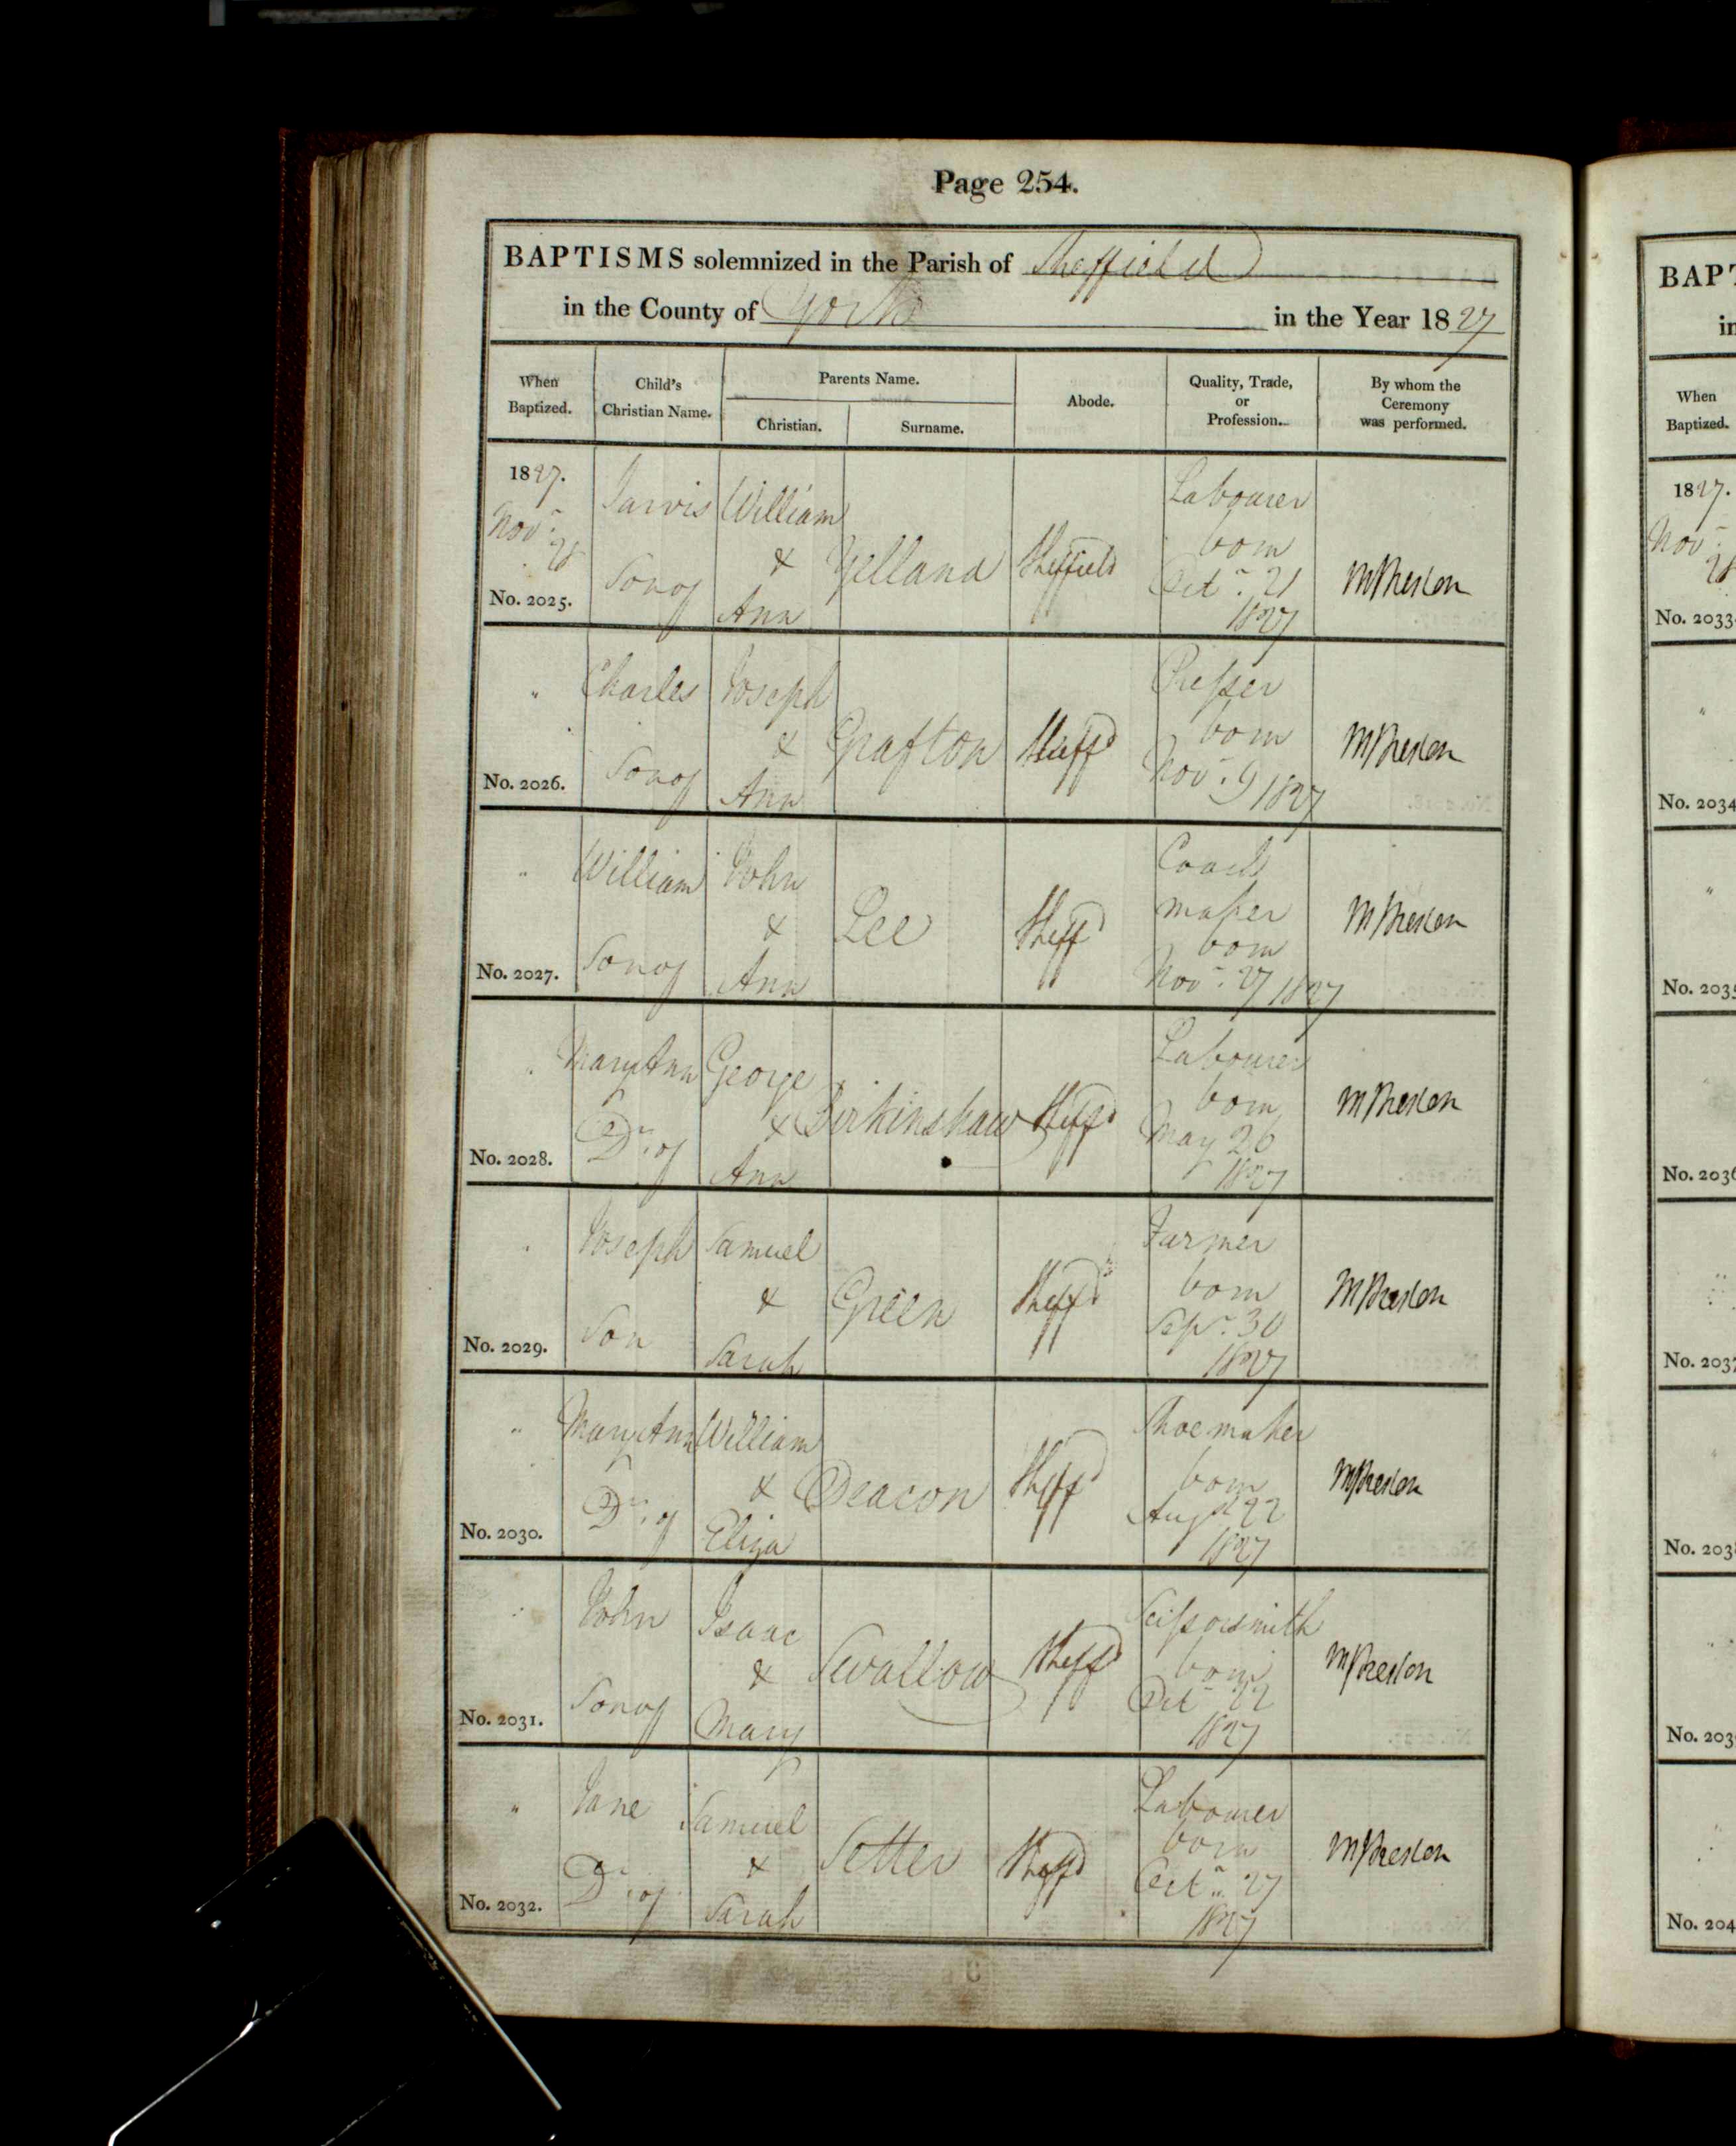 Page 254.
BAPTISMS solemnized in the Parish of Sheffield
in the County of York in the Year 1827
When Baptized. Child's Christian Name. Parents Name. Christian. Surname. Abode. Quality, Trade, or Profession. By whom the Ceremony was performed.
1827. Novr. 28 No. 2025. Jarvis Son of William & Ann Yelland Sheffield Labourer born Octr. 21 1827 M Preston
" No. 2026. Charles Son of Joseph & Ann Grafton Sheffd Presser born Novr. 9 1827 M Preston
" No. 2027. William Son of John & Ann Lee Sheffd Coach maker born Novr. 27 1827 M Preston
" No. 2028. Mary Ann Dr. of George & Ann Birkinshaw Sheffd Labourer born May 26 1827 M Preston
" No. 2029. Joseph Son Samuel & Sarah Green Sheffd Farmer born Sepr. 30 1827 M Preston
" No. 2030. Mary Ann Dr. of William & Eliza Deacon Sheffd Shoemaker born Augst 22 1827 M Preston
" No. 2031. John Son of Isaac & Mary Swallow Sheffd Scissorsmith born Octr 22 1827 M Preston
" No. 2032. Jane Dr. of Samuel & Sarah Setter Sheffd Labourer born Octr. 27 1827 M Preston
BAPT
in
When
Baptized.
1827.
Novr
28
No. 2033
No. 2034
No. 2035
No. 2036
No. 2037
No. 203
No. 203
No. 204